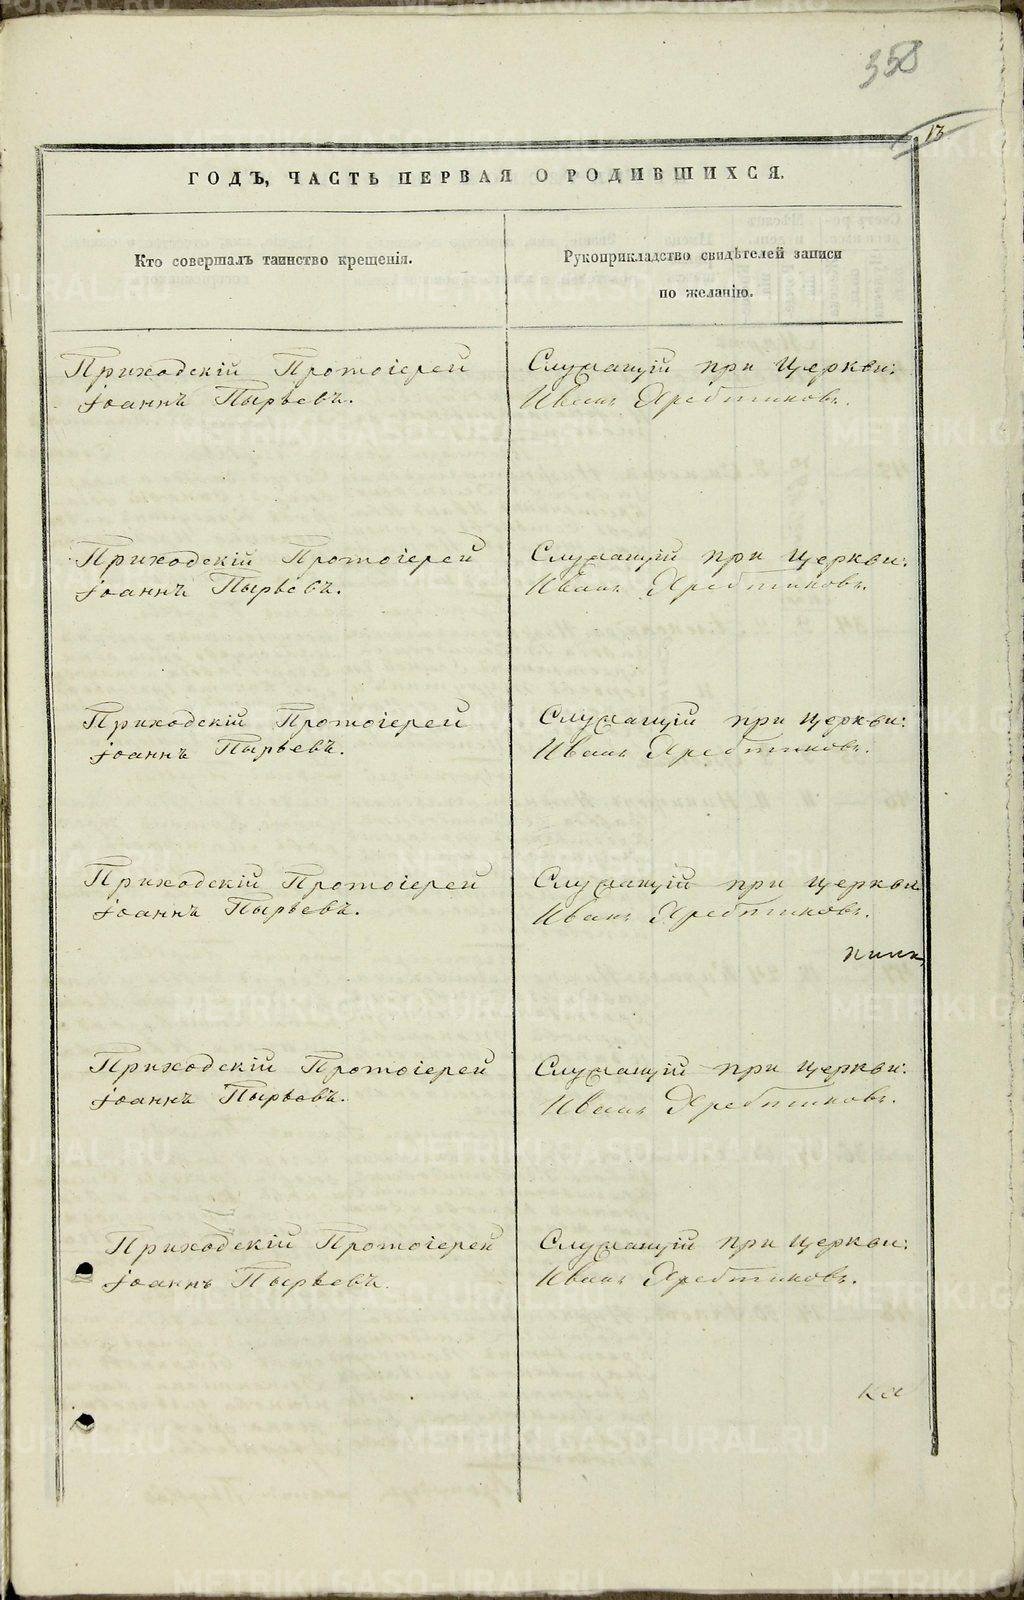 358
13
ГОДЪ, ЧАСТЬ ПЕРВАЯ О РОДИВШИХСЯ.
Кто совершалъ таинство крещенія.
Рукоприкладство свидѣтелей записи
по желанію.
Приходскій Протоіерей
Іоаннъ Пырьевъ.
Служащій при церкви:
Иванъ Хребтиковъ.
Приходскій Протоіерей
Іоаннъ Пырьевъ.
Служащій при церкви:
Иванъ Хребтиковъ.
Приходскій Протоіерей
Іоаннъ Пырьевъ.
Служащій при церкви:
Иванъ Хребтиковъ.
Приходскій Протоіерей
Іоаннъ Пырьевъ.
Служащій при церкви
Иванъ Хребтиковъ.
Приходскій Протоіерей
Іоаннъ Пырьевъ.
Служащій при церкви:
Иванъ Хребтиковъ.
Приходскій Протоіерей
Іоаннъ Пырьевъ.
Служащій при церкви:
Иванъ Хребтиковъ.
METRIKI.GASO-URAL.RU